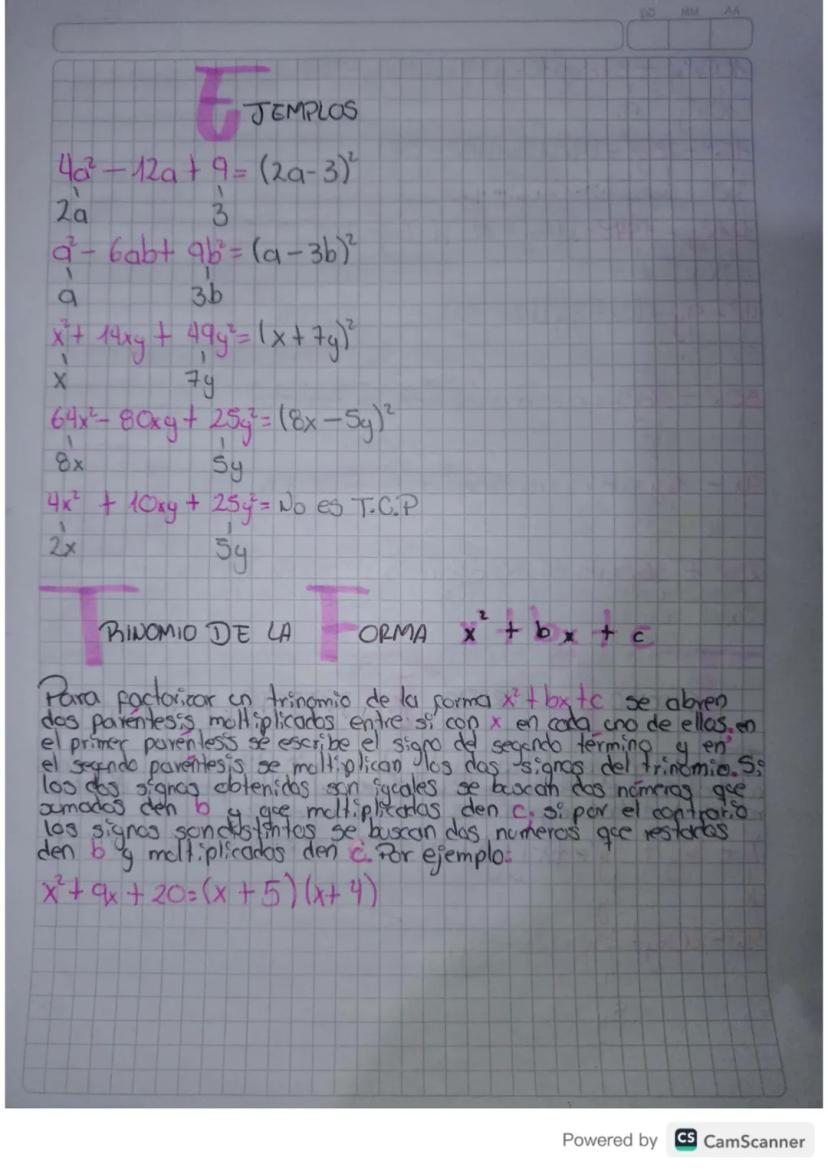 DD MM AA
EJEMPLOS
4a² - 12a + 9 = (2a-3)²
2a 3
a² - 6ab + 9b² = (a - 3b)²
a 3b
x² + 14xy + 49y² = (x + 7y)²
x 7y
64x² - 80xy + 25y² = (8x - 5y)²
8x 5y
4x² + 10xy + 25y² = No es T.C.P
2x 5y
TRINOMIO DE LA FORMA x² + bx + c
Para factorizar un trinomio de la forma x² + bx + c se abren
dos paréntesis multiplicados entre si con x en cada uno de ellos, en
el primer paréntesis se escribe el signo del segundo término y en
el segundo paréntesis se multiplican los dos signos del trinomio. Si
los dos signos obtenidos son iguales se buscan dos números que
sumados den b y que multiplicados den c, si por el contrario
los signos son distintos se buscan dos numeros que restados
den b y multiplicados den c. Por ejemplo:
x² + 9x + 20 = (x + 5)(x + 4)
Powered by CS CamScanner